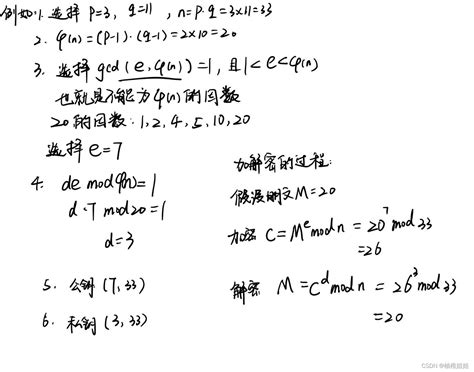 例如:1. 选择 P=3, q=11, n=P·q=3×11=33
2. φ(n)=(P-1)·(q-1)=2×10=20
3. 选择 gcd(e,φ(n))=1, 且1<e<φ(n)
也就是不能为φ(n)的因数
20的因数:1,2,4,5,10,20
选择e=7
4. de modφ(n)=1
d·7 mod20=1
d=3
5. 公钥(7,33)
6. 私钥(3,33)
加解密的过程:
假设明文M=20
加密 C=M^e mod n = 20^7 mod 33
=26
解密 M=C^d mod n = 26^3 mod 33
=20
CSDN @杨根姐姐